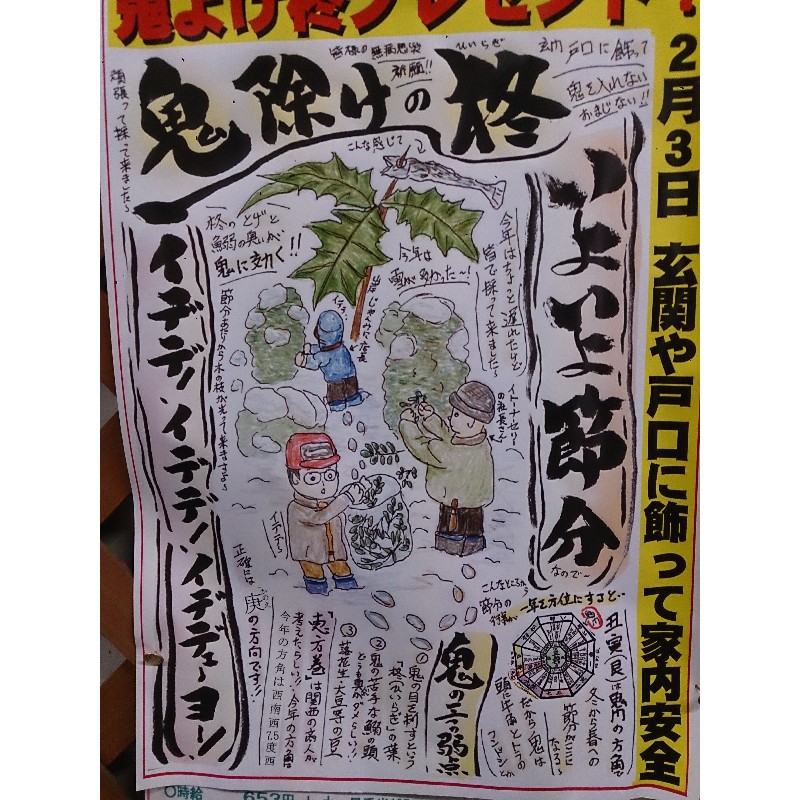 鬼よけ柊プレゼント!
2月3日 玄関や戸口に飾って家内安全
皆様の無病息災
祈願!!
ひいらぎ
玄関戸口に飾って
鬼を入れない
おまじない!!
鬼除けの柊
頑張って採って来ました
こんな感じで
いよいよ節分
なのでー
柊のとげと
鰯の臭いが
鬼に効く!!
今年は
雪が多かった〜!
今年はちょっと遅れたけど
皆で採って来ました!
イデデ、
店長
イトーナセリー
の社長さん
節分あたりから木の枝が光って来ますよ
イデデ〜
イデデ!イデデ!イデデューヨー!
正確には
庚の方向です!!
恵方巻は関西の商人が
考えたらしい!!今年の方角は
今年の方角は西南西7.5度西
鬼の三つの弱点
①鬼の目を刺すという
「柊(ひいらぎ)」の葉
②鬼の苦手な鰯の頭
とても臭がダメらしい!!
③落花生・大豆等の豆
こんなところから
節分の
一年を方位にすると…
丑寅(艮)は鬼門の方角で
冬から春への
節分がここに
なる〜
だから鬼は
頭に牛角とトラの
パンツとか
〇時給
653円